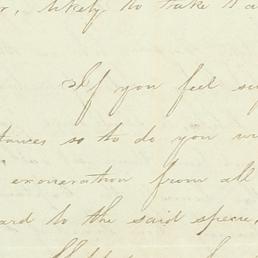 r, likely to take
If you feel
stances so to do you
exoneration from all
ard to the said specie,